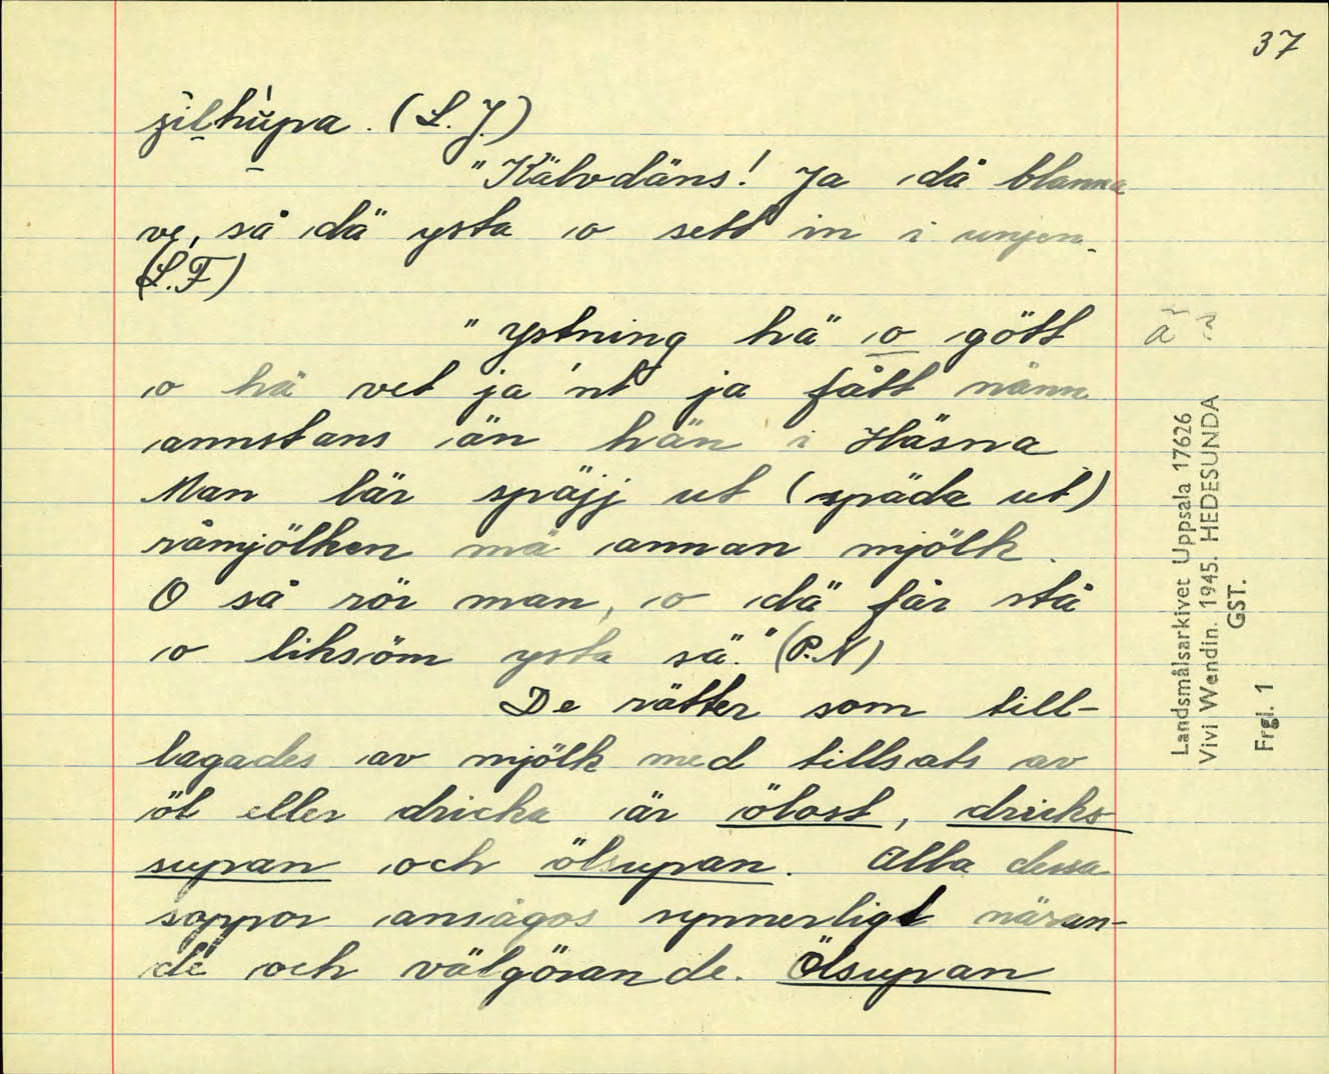 37
silhupa. (L. J.)
"Kälvdäns! Ja då blanna
ve, så dä ysta o sett in i unjen.
(L.F)
"ystning hä o gött
o hä vet ja 'nt ja fått nänn
annstans än hän i Häsna
Man lär späjj ut (späda ut)
råmjölken mä annan mjölk.
O så rör man, o dä får stå
o liksöm ysta sä." (P.N)
De rätter som till-
lagades av mjölk med tillsats av
öl eller dricka är ölost, dricks
supan och ölsupan. Alla dessa
soppor ansågos synnerligt näran-
de och välgörande. Ölsupan
Landsmålsarkivet Uppsala 17626
Vivi Wendin. 1945. HEDESUNDA
GST.
Frgl. 1